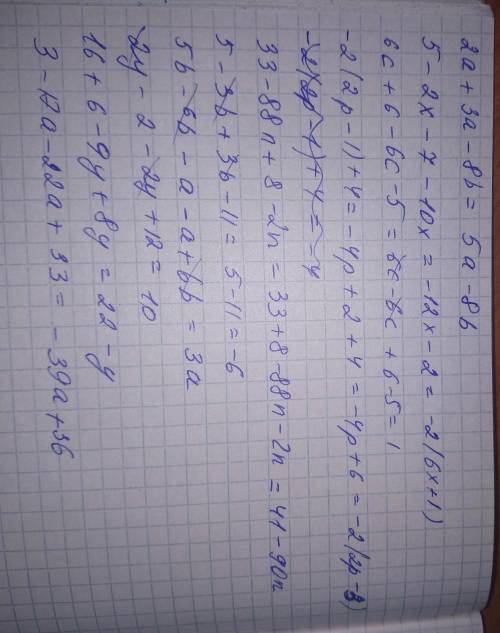 2a + 3a - 8b = 5a - 8b
5 - 2x - 7 - 10x = -12x - 2 = -2(6x+1)
6c + 6 - 6c - 5 = 6c - 6c + 6 - 5 = 1
-2(2p - 1) + 4 = -4p + 2 + 4 = -4p + 6 = -2(2p-3)
33 - 88n + 8 - 2n = 33 + 8 - 88n - 2n = 41 - 90n
5 - 3b + 3b - 11 = 5 - 11 = -6
5b - 6b - a - a + 6b = 3a
2y - 2 - 2y + 12 = 10
16 + 6 - 9y + 8y = 22 - y
3 - 17a - 22a + 33 = -39a + 36